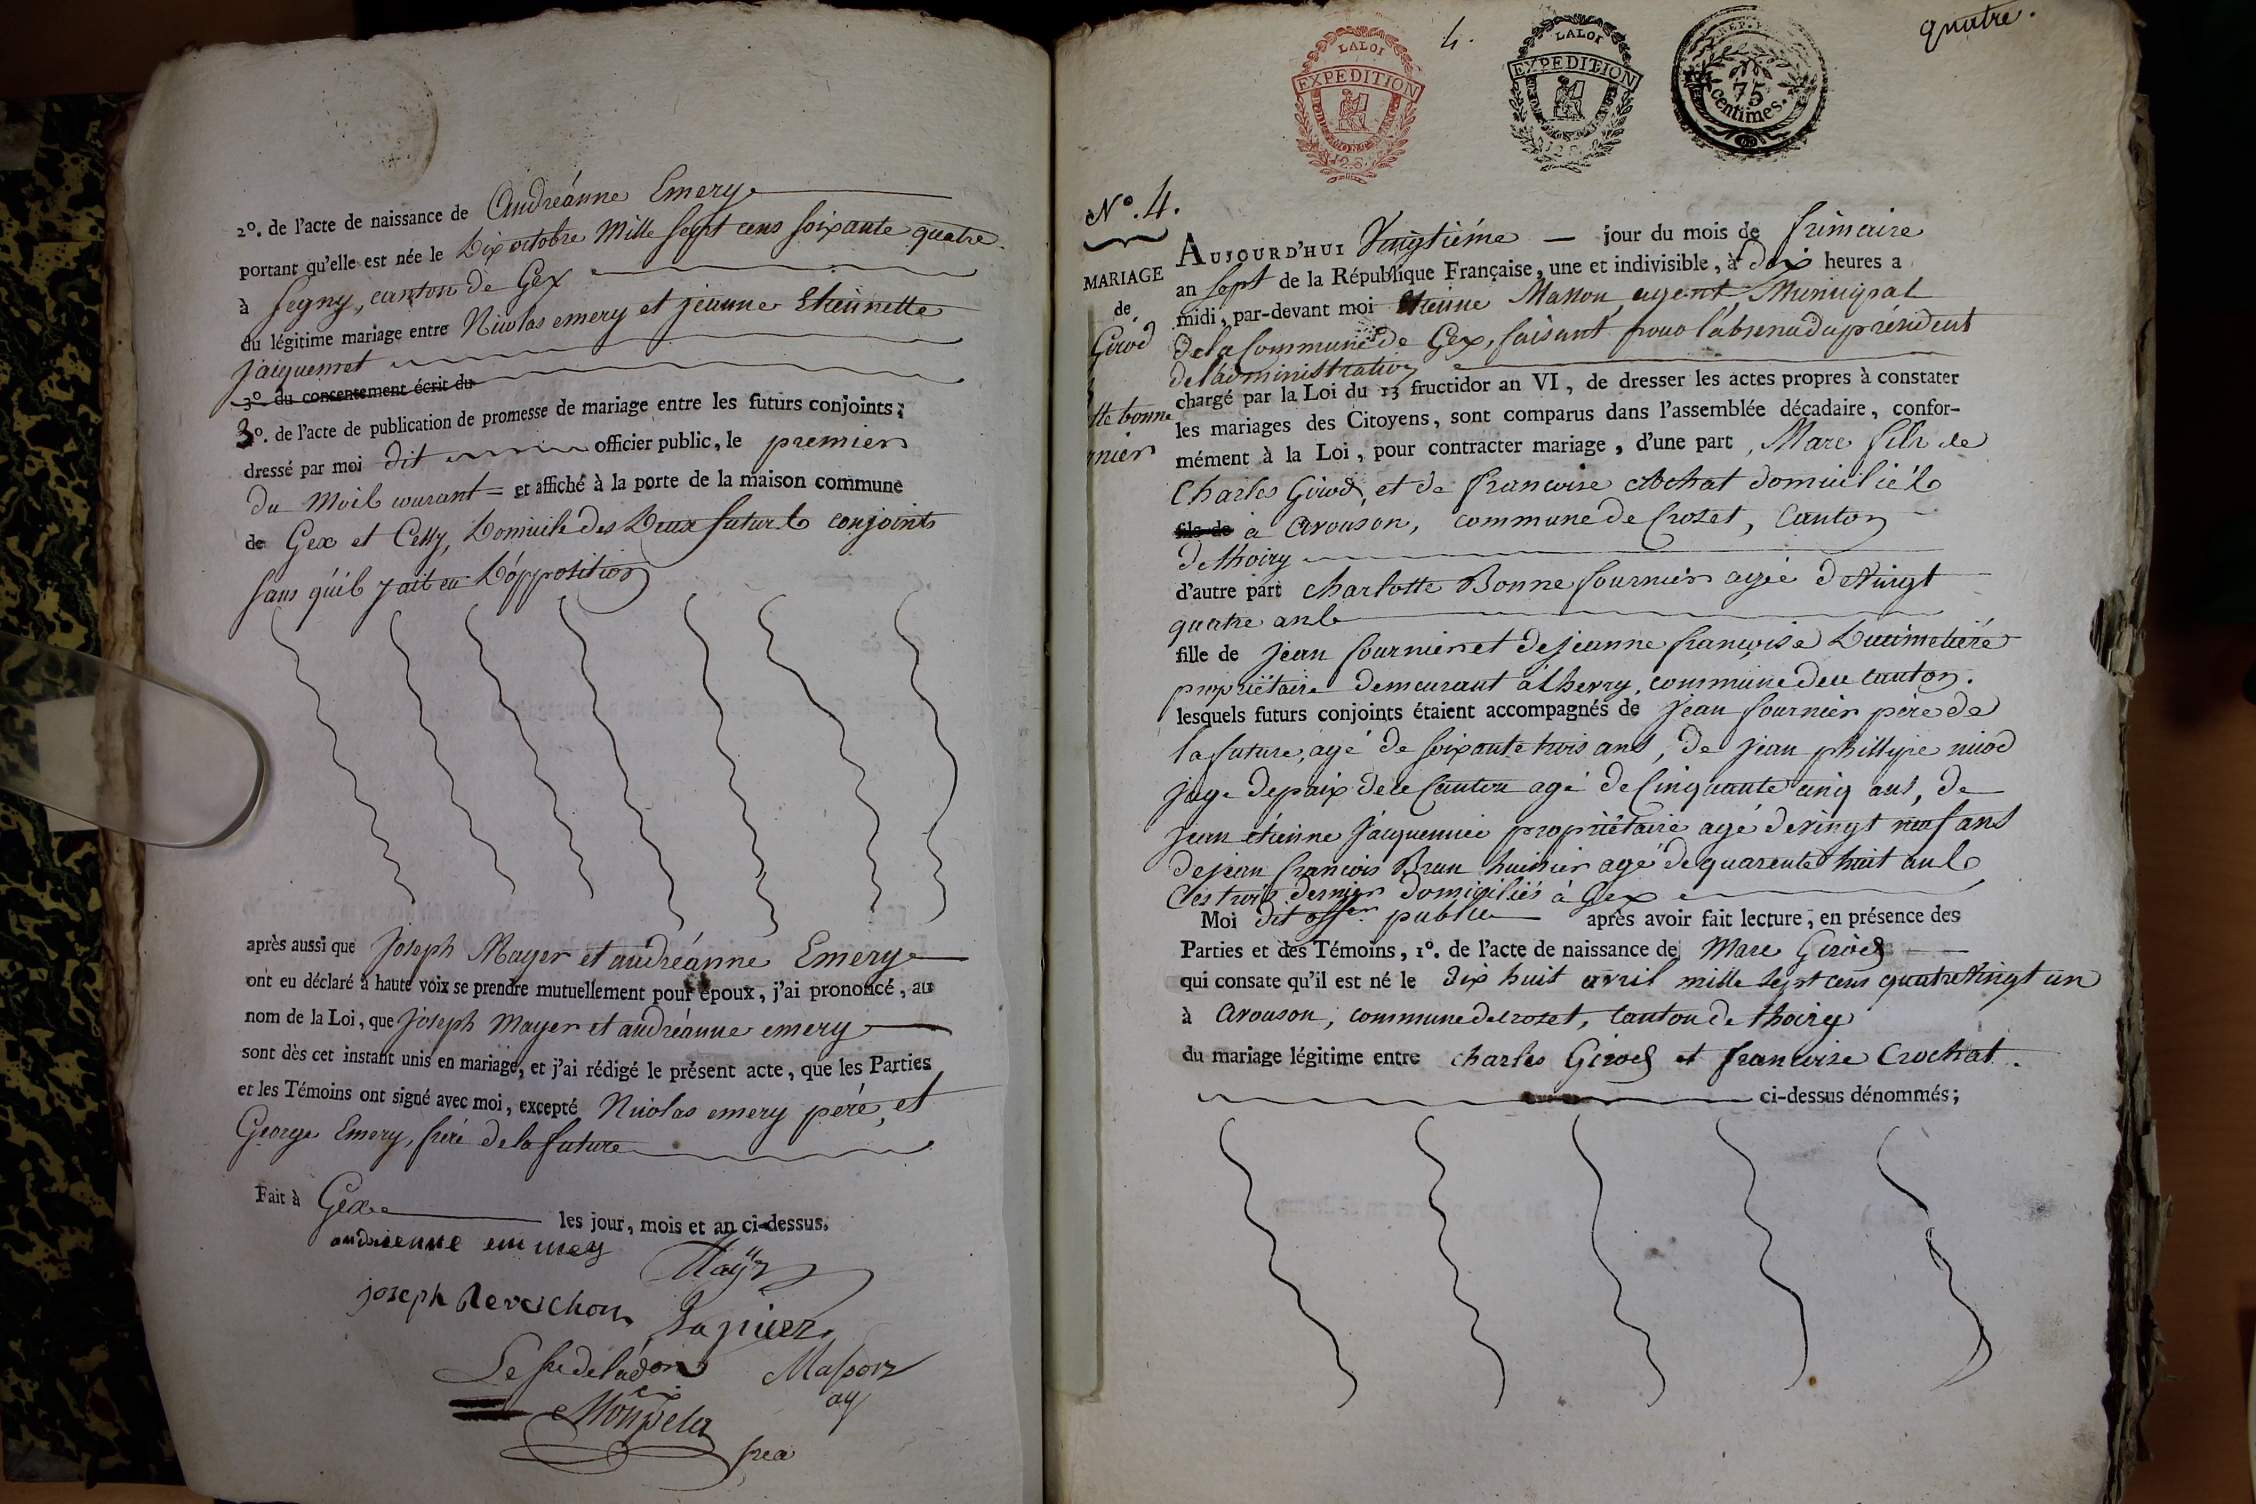 2°. de l'acte de naissance de Andréanne Emery
portant qu'elle est née le Dix octobre Mille sept cens soixante quatre
à Segny, canton de Gex
du légitime mariage entre Nicolas emery et jeanne Etiennette
jaiquemet
3°. du consentement écrit du
3°. de l'acte de publication de promesse de mariage entre les futurs conjoints;
dressé par moi dit officier public, le premier
du Mois courant = et affiché à la porte de la maison commune
de Gex et Cessy, Domicile des Deux futurs conjoints
sans qu'il y ait eu D'opposition
après aussi que Joseph Mayer et andréanne Emery
ont eu déclaré à haute voix se prendre mutuellement pour époux, j'ai prononcé, au
nom de la Loi, que Joseph Mayer et andréanne emery
sont dès cet instant unis en mariage, et j'ai rédigé le présent acte, que les Parties
et les Témoins ont signé avec moi, excepté Nicolas emery pere, et
George Emery, frère de la future
Fait à Gex les jour, mois et an ci-dessus.
Mayer
joseph
Masson
ag
4.
LA LOI
EXPEDITION
LA LOI
EXPEDITION
REP.
75
centimes.
quatre.
N°. 4.
MARIAGE
de
Girod
tte bonne
rnier
AUJOURD'HUI Vingtiéme — jour du mois de frimaire
an sept de la République Française, une et indivisible, à dix heures a
midi, par-devant moi Etienne Masson, agent Municipal
de la Commune de Gex, faisant pour l'absence du président
de l'administration
chargé par la Loi du 13 fructidor an VI, de dresser les actes propres à constater
les mariages des Citoyens, sont comparus dans l'assemblée décadaire, confor-
mément à la Loi, pour contracter mariage, d'une part, Marc fils de
Charles Girod, et de francoise Crochat domicilié
fils de à Avouson, commune de Crozet, Canton
de thoiry
d'autre part charlotte Bonne fournier agée de Vingt
quatre ans
fille de jean fournier et de jeanne françoise Ducimetiére
propriétaire demeurant à Chevry, commune de ce canton.
lesquels futurs conjoints étaient accompagnés de jean fournier pere de
la future, agé de soixante trois ans, de jean phillipe niod
juge de paix de ce Canton agé de Cinquante cinq ans, de
jean étienne jacquemier propriétaire agé de vingt neuf ans
de jean françois Brun huissier agé de quarante huit ans
Ces trois dernier domiciliés à Gex
Moi dit offer public après avoir fait lecture, en présence des
Parties et des Témoins, 1°. de l'acte de naissance de Marc Girod
qui consate qu'il est né le dix huit avril mille sept cens quatre Vingt un
à Avouson, commune de crozet, canton de thoiry
du mariage légitime entre charles Girod et francoise Crochat.
ci-dessus dénommés;